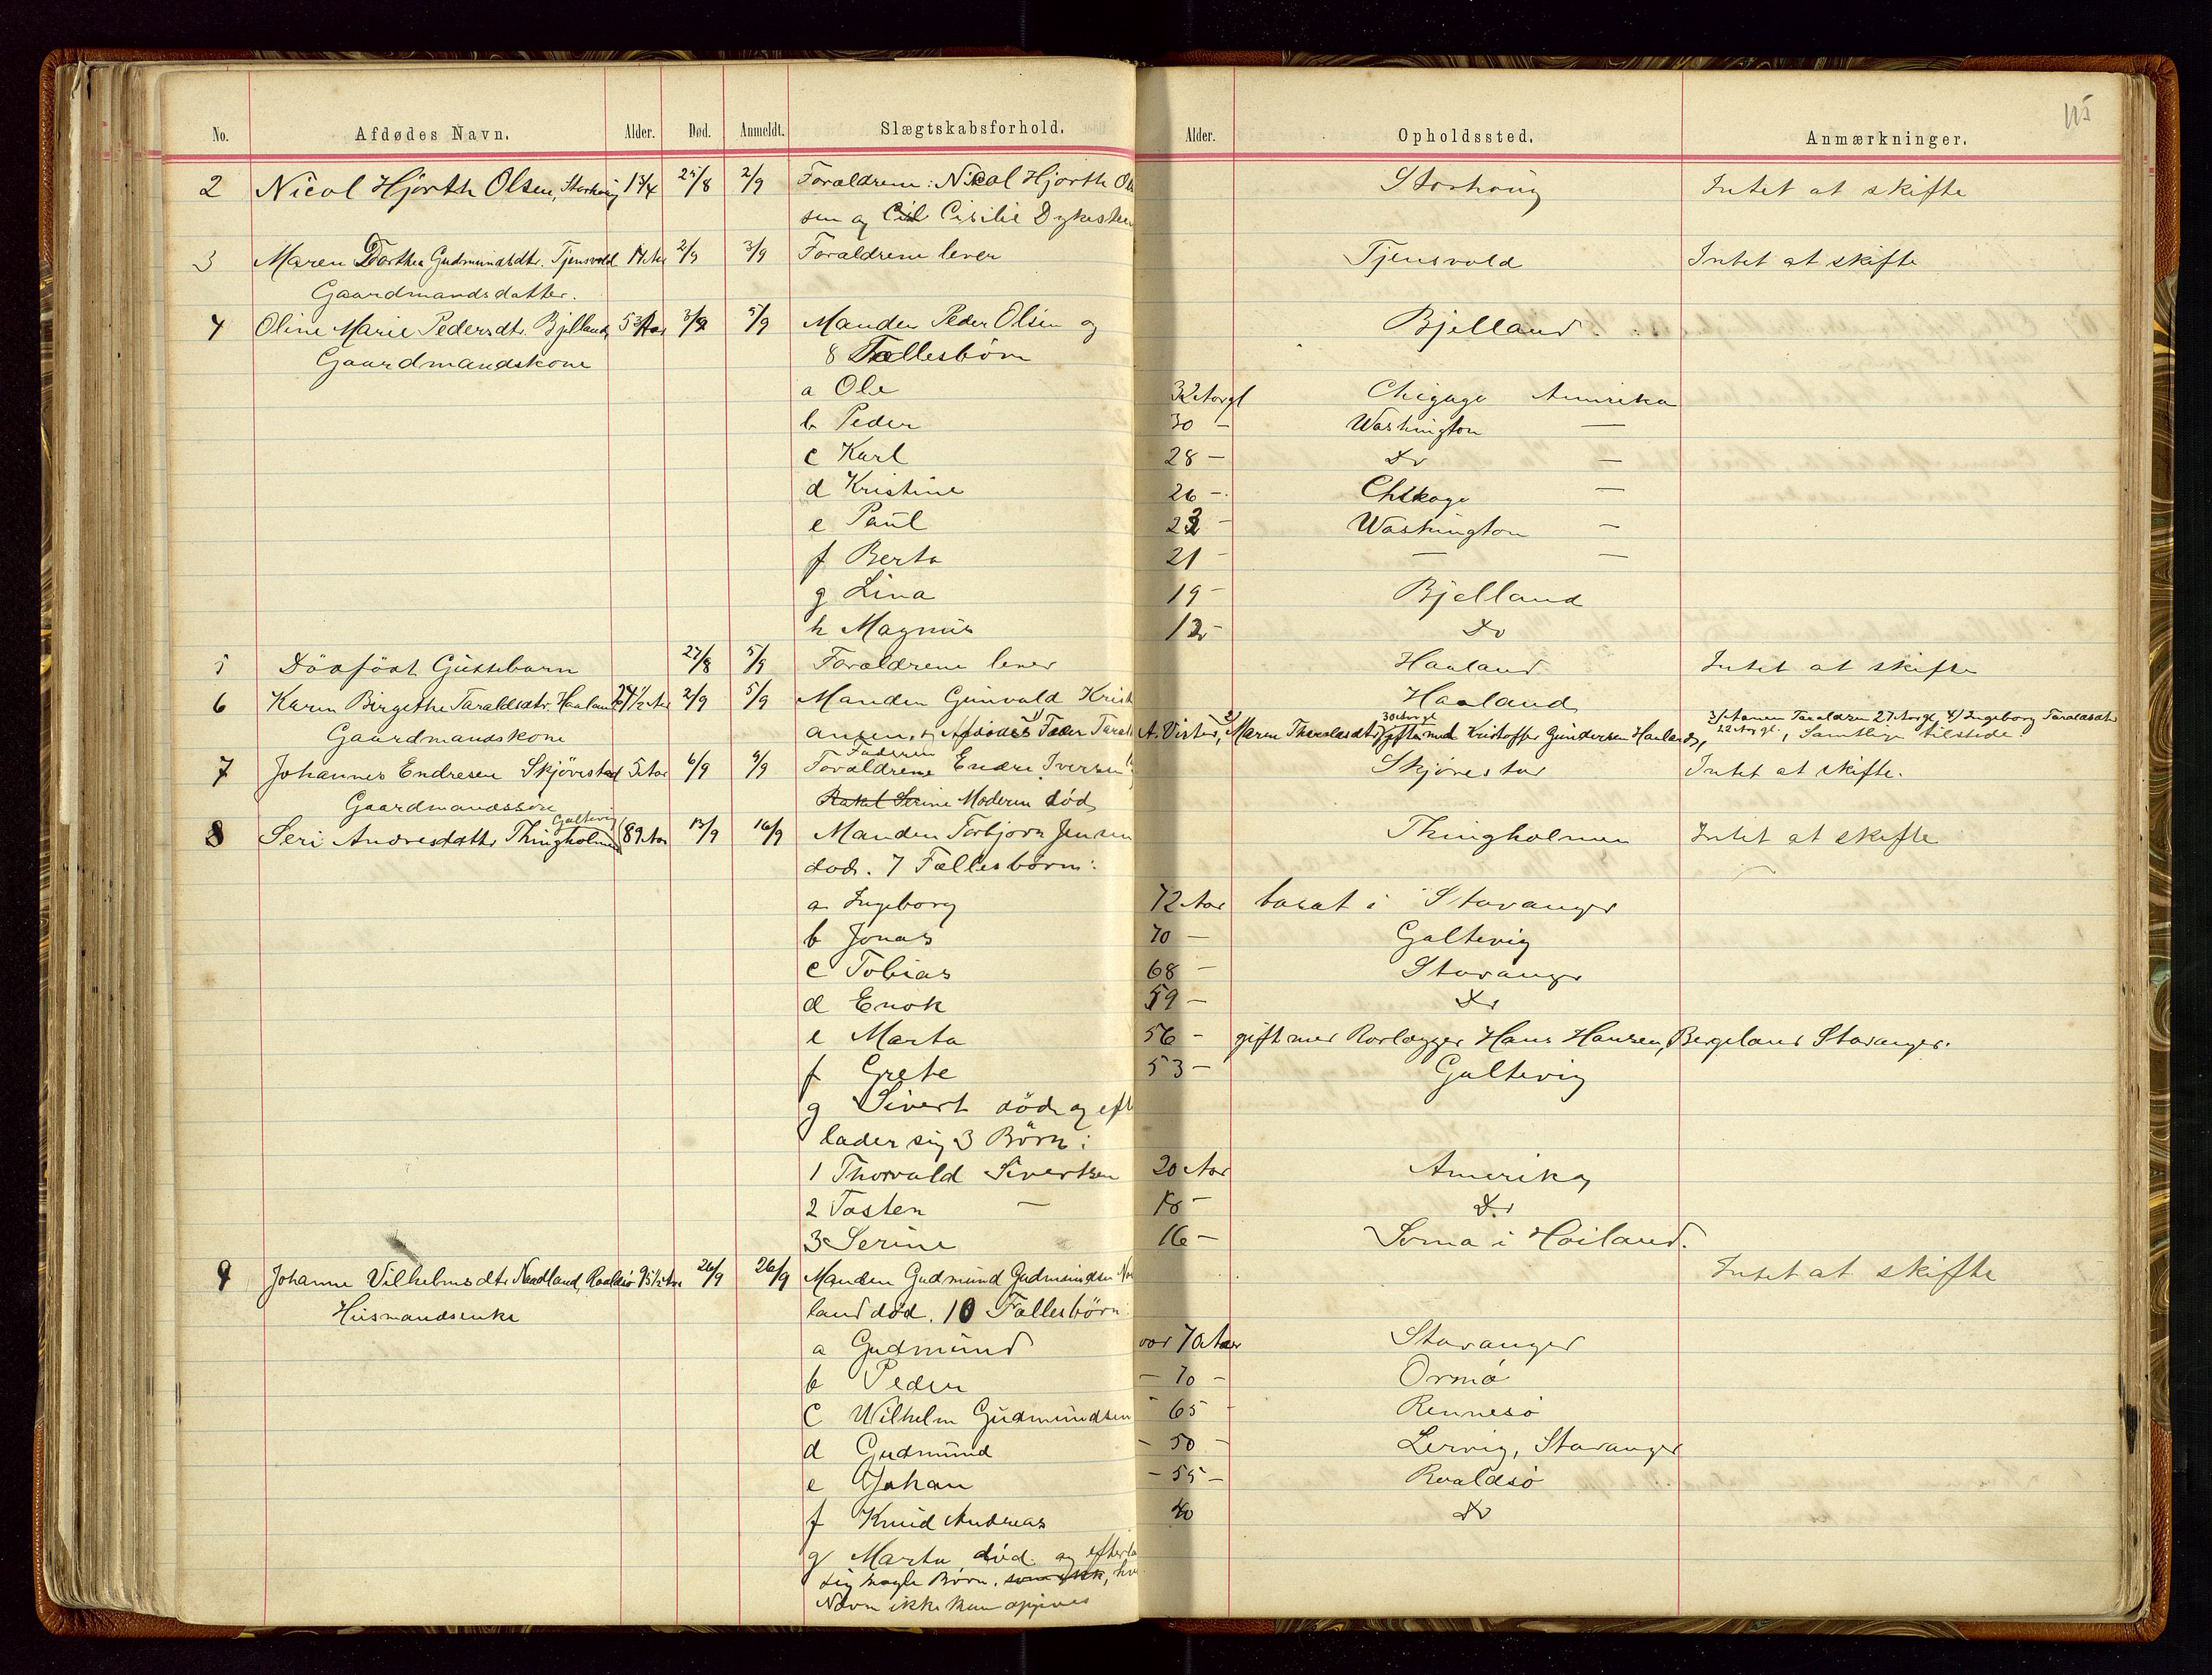 115
No. Afdødes Navn. Alder. Død. Anmeldt. Slægtskabsforhold. Alder. Opholdssted. Anmærkninger.
2 Nicol Hjorth Olsen, Storhoug 1 3/4 25/8 2/9 Forældrene: Nicol Hjorth Ol Storhoug Intet at skifte
sen og Cisilie Dyke
3 Maren Dorthea Gudmundsdtr. Tjensvold 2/9 3/9 Forældrene lever Tjensvold Intet at skifte
Gaardmandsdatter.
4 Oline Marie Pedersdtr. Bjelland, 53 Aar 3/9 5/9 Manden Peder Olsen og Bjelland.
Gaardmandskone 8 Fællesbørn
a Ole 32 Aar gl Chigago Amerika
b Peder 30 - Washington —
c Karl 28 - Do —
d Kristine 26 - Chikago —
e Paul 23 - Washington —
f Berta 21 - — —
g Lina 19 - Bjelland
h Magnus 12 - Do
5 Dödfödt Guttebarn 27/8 5/9 Forældrene lever Haaland Intet at skifte
6 Karen Birgethe Taraldsdtr. Haaland 24 1/2 Aar 2/9 5/9 Manden Gunvald Kristi Haaland
Gaardmandskone ansen, Afdødes Fader Tarald A. Vister, 2) Maren Tharaldsdtr 30 Aar gl gift med Kristoffer Gundersen Haaland, 3/ Taraldsen 27 Aar gl, 4) Ingeborg Taraldsdtr
22 Aar gl., Samtlige tilstede.
7 Johannes Endresen Skjövestad 5 Aar 6/9 9/9 Faderen Forældrene Endre Iversen Skjövestad Intet at skifte.
Gaardmandssøn Rakel Serine Moderen död
8 Seri Andresdatter Thingholmen Galtevig 89 Aar 13/9 16/9 Manden Torbjørn Jensen Thingholmen Intet at skifte
død. 7 Fællesbørn:
a Ingeborg 72 Aar bosat i Stavanger
b Jonas 70 — Galtevig
c Tobias 68 - Stavanger
d Enok 59 — Do
e Marta 56 - gift med Rorlægger Hans Hansen, Bergeland Stavanger.
f Grete 53 — Galtevig
g Sivert død og eft
lader sig 3 Börn:
1 Thorvald Sivertsen 20 Aar Amerika
2 Tosten — 18 - Do
3 Serine 16 — Soma i Höiland.
9 Johanne Vilhelmsdtr Nordland, Roaldsø 95 1/2 Aar 26/9 26/9 Manden Gudmund Gudmundsen No Intet at skifte
Husmandsenke land død. 10 Fællesbørn:
a Gudmund over 70 Aar Stavanger
b Peder — 70 - Ormø
c Wilhelm Gudmundsen - 65 - Rennesø
d Gudmund - 50 - Lervig, Stavanger
e Johan - 55 — Roaldsø
f Knud Andreas 40 Do
g Marta død og efterla
sig nogle Børn, som ikke, hv
Navn ikke kan opgives